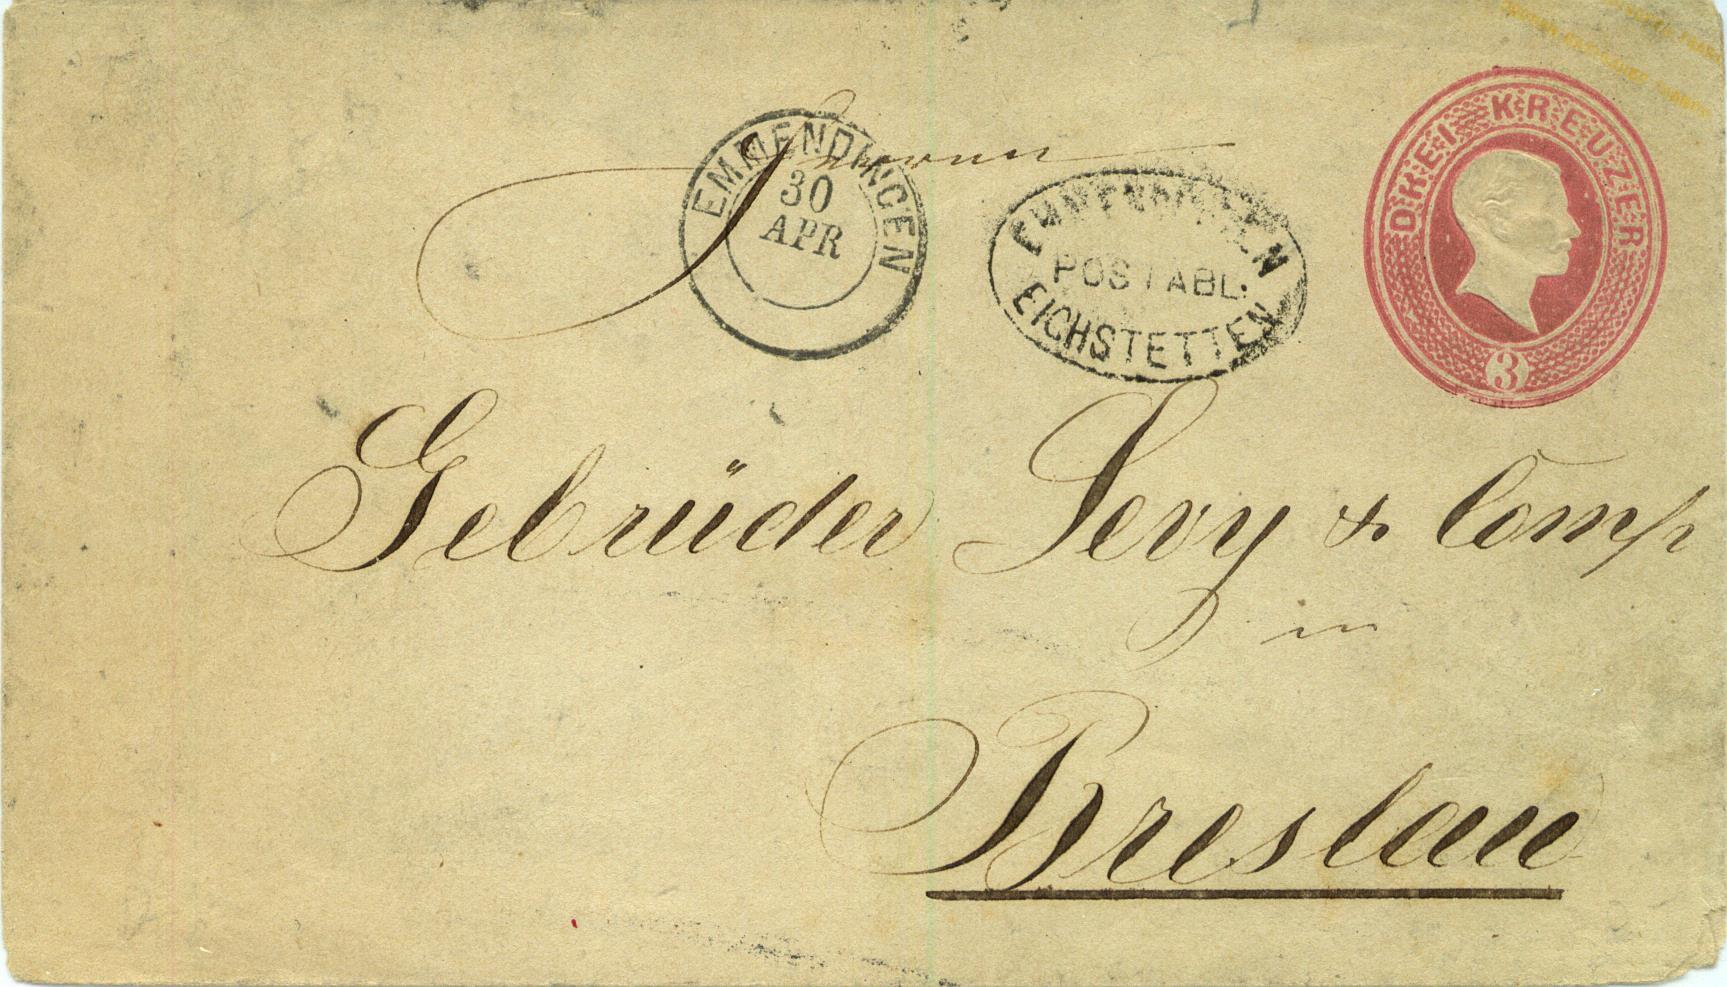 DREI KREUZER
3
EMMENDINGEN
30
APR
EMMENDINGEN
POSTABL.
EICHSTETTEN
Herren
Gebrüder Levy & Comp
in
Breslau